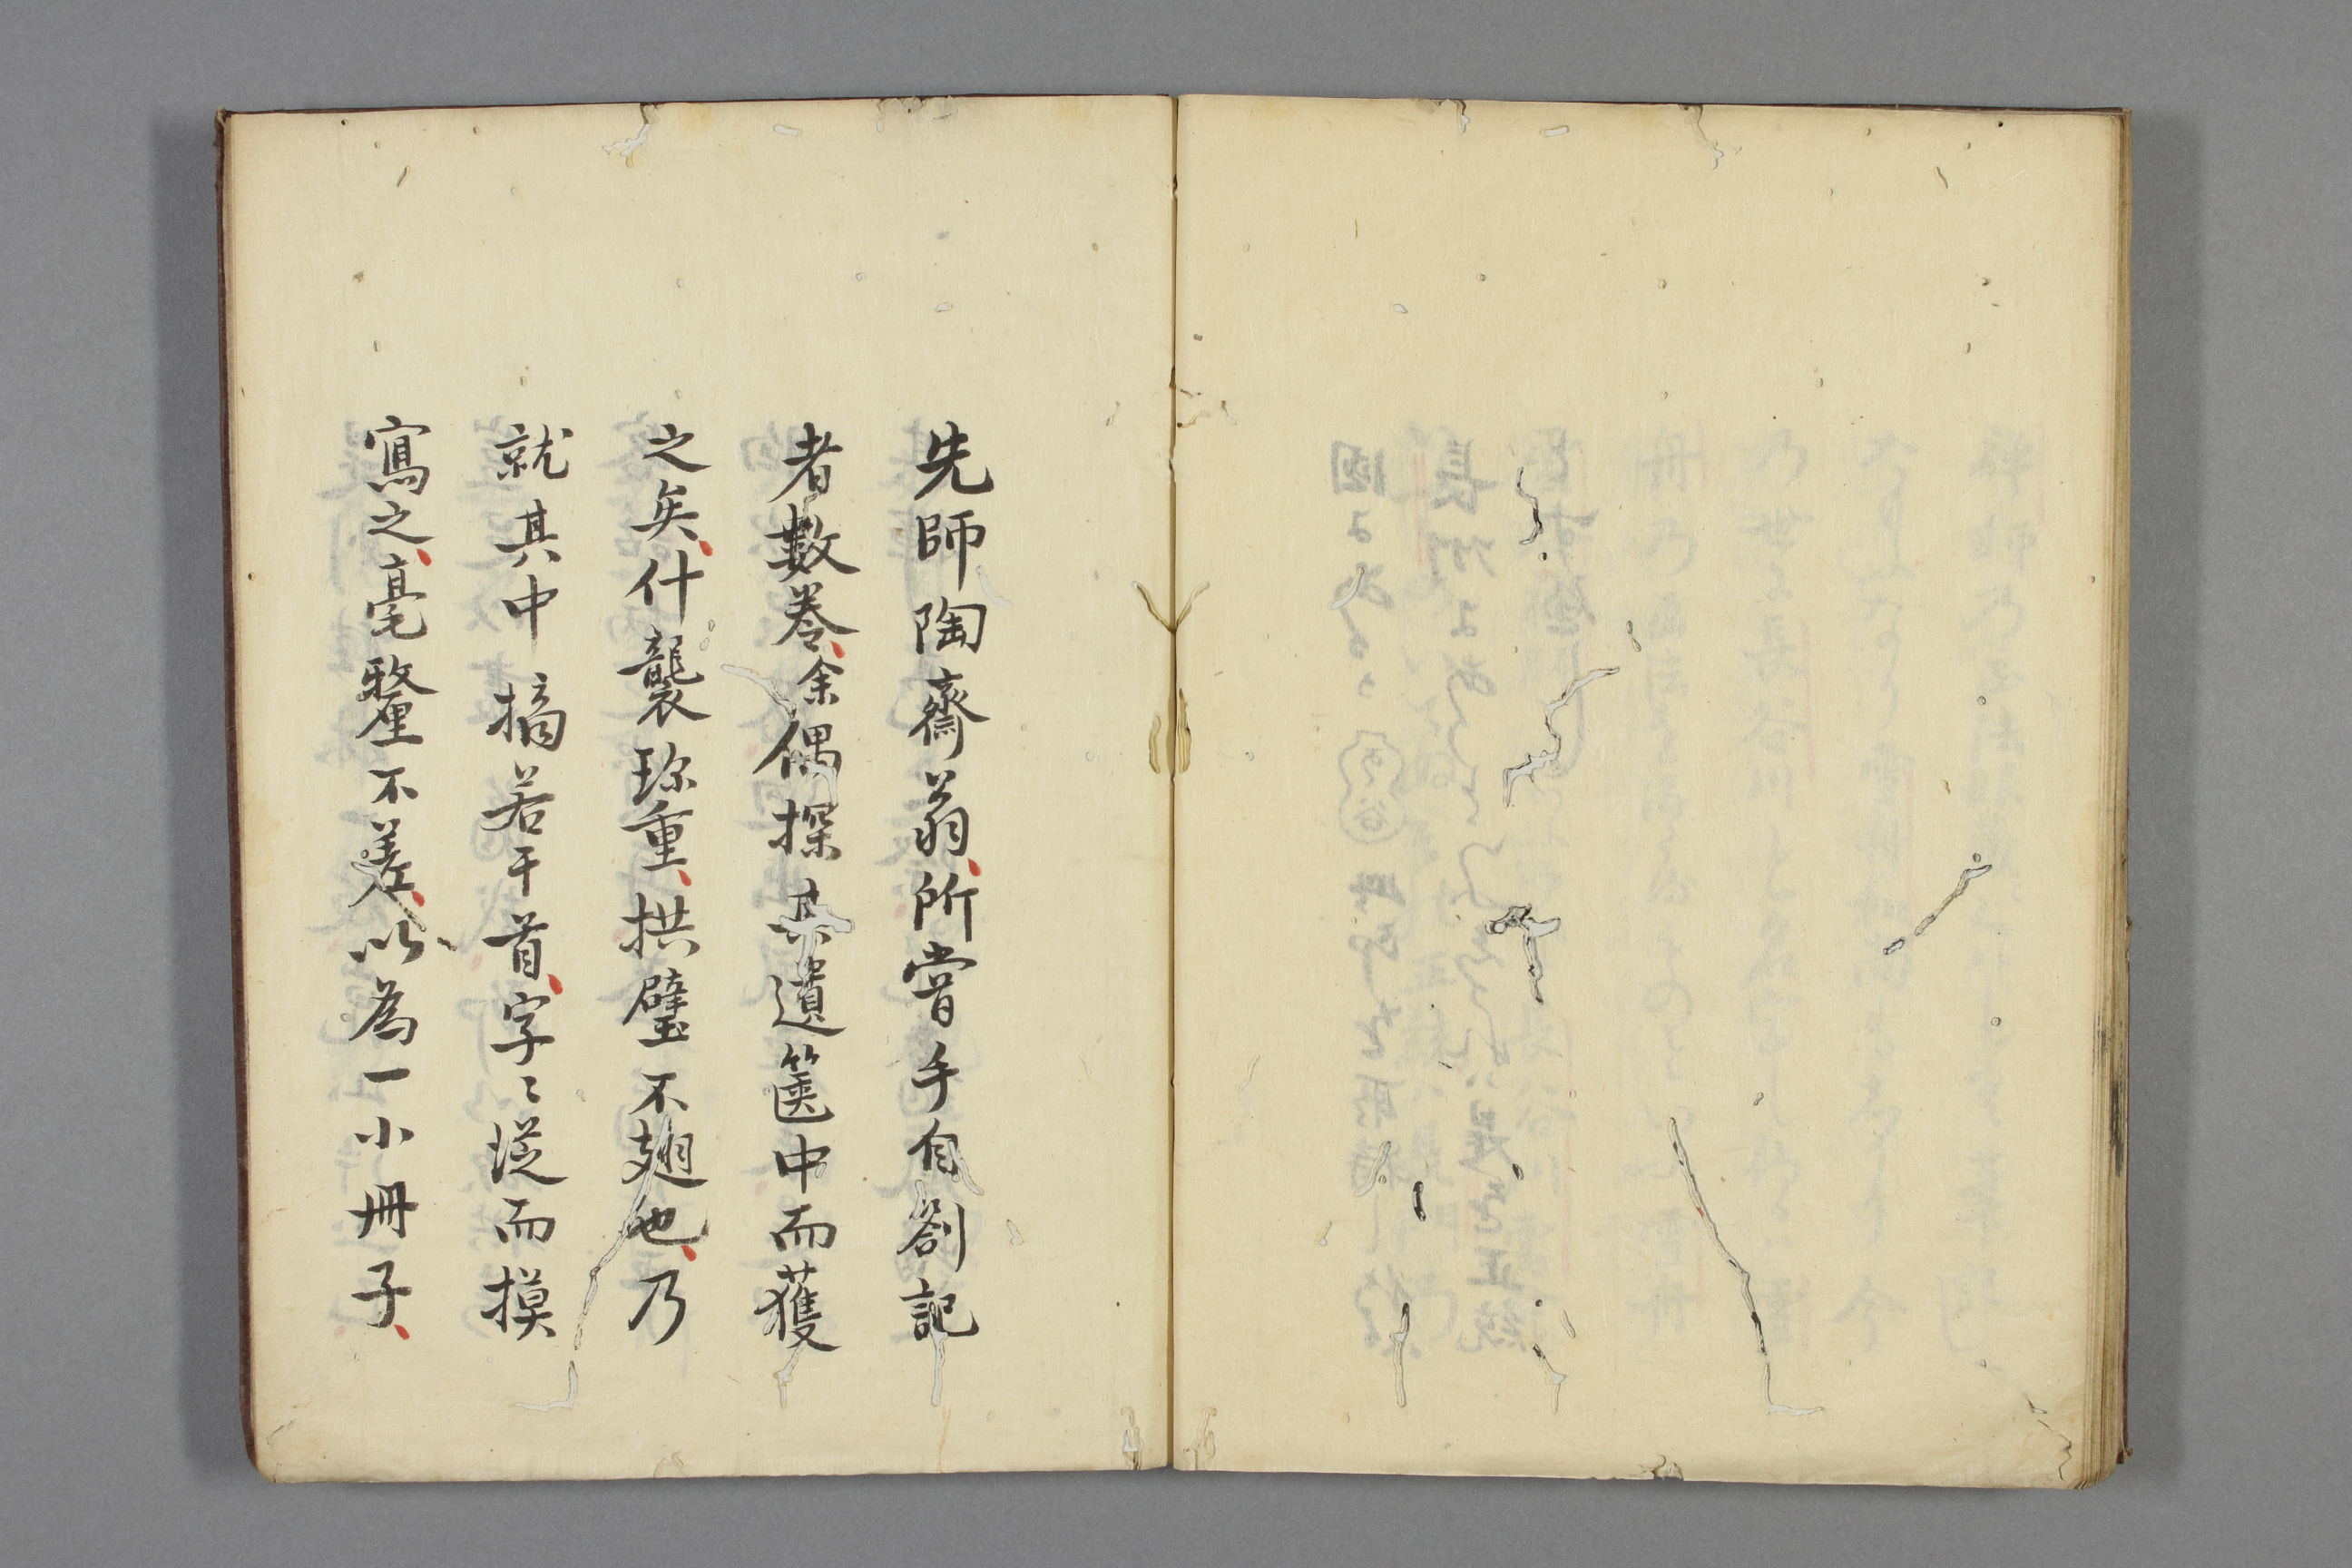 先師陶齋翁所嘗手自劄記
者數卷余偶探其遺篋中而獲
之矣什襲珎重拱璧不翅也乃
就其中摘若干首字〻從而摸
寫之毫釐不差以為一小冊子